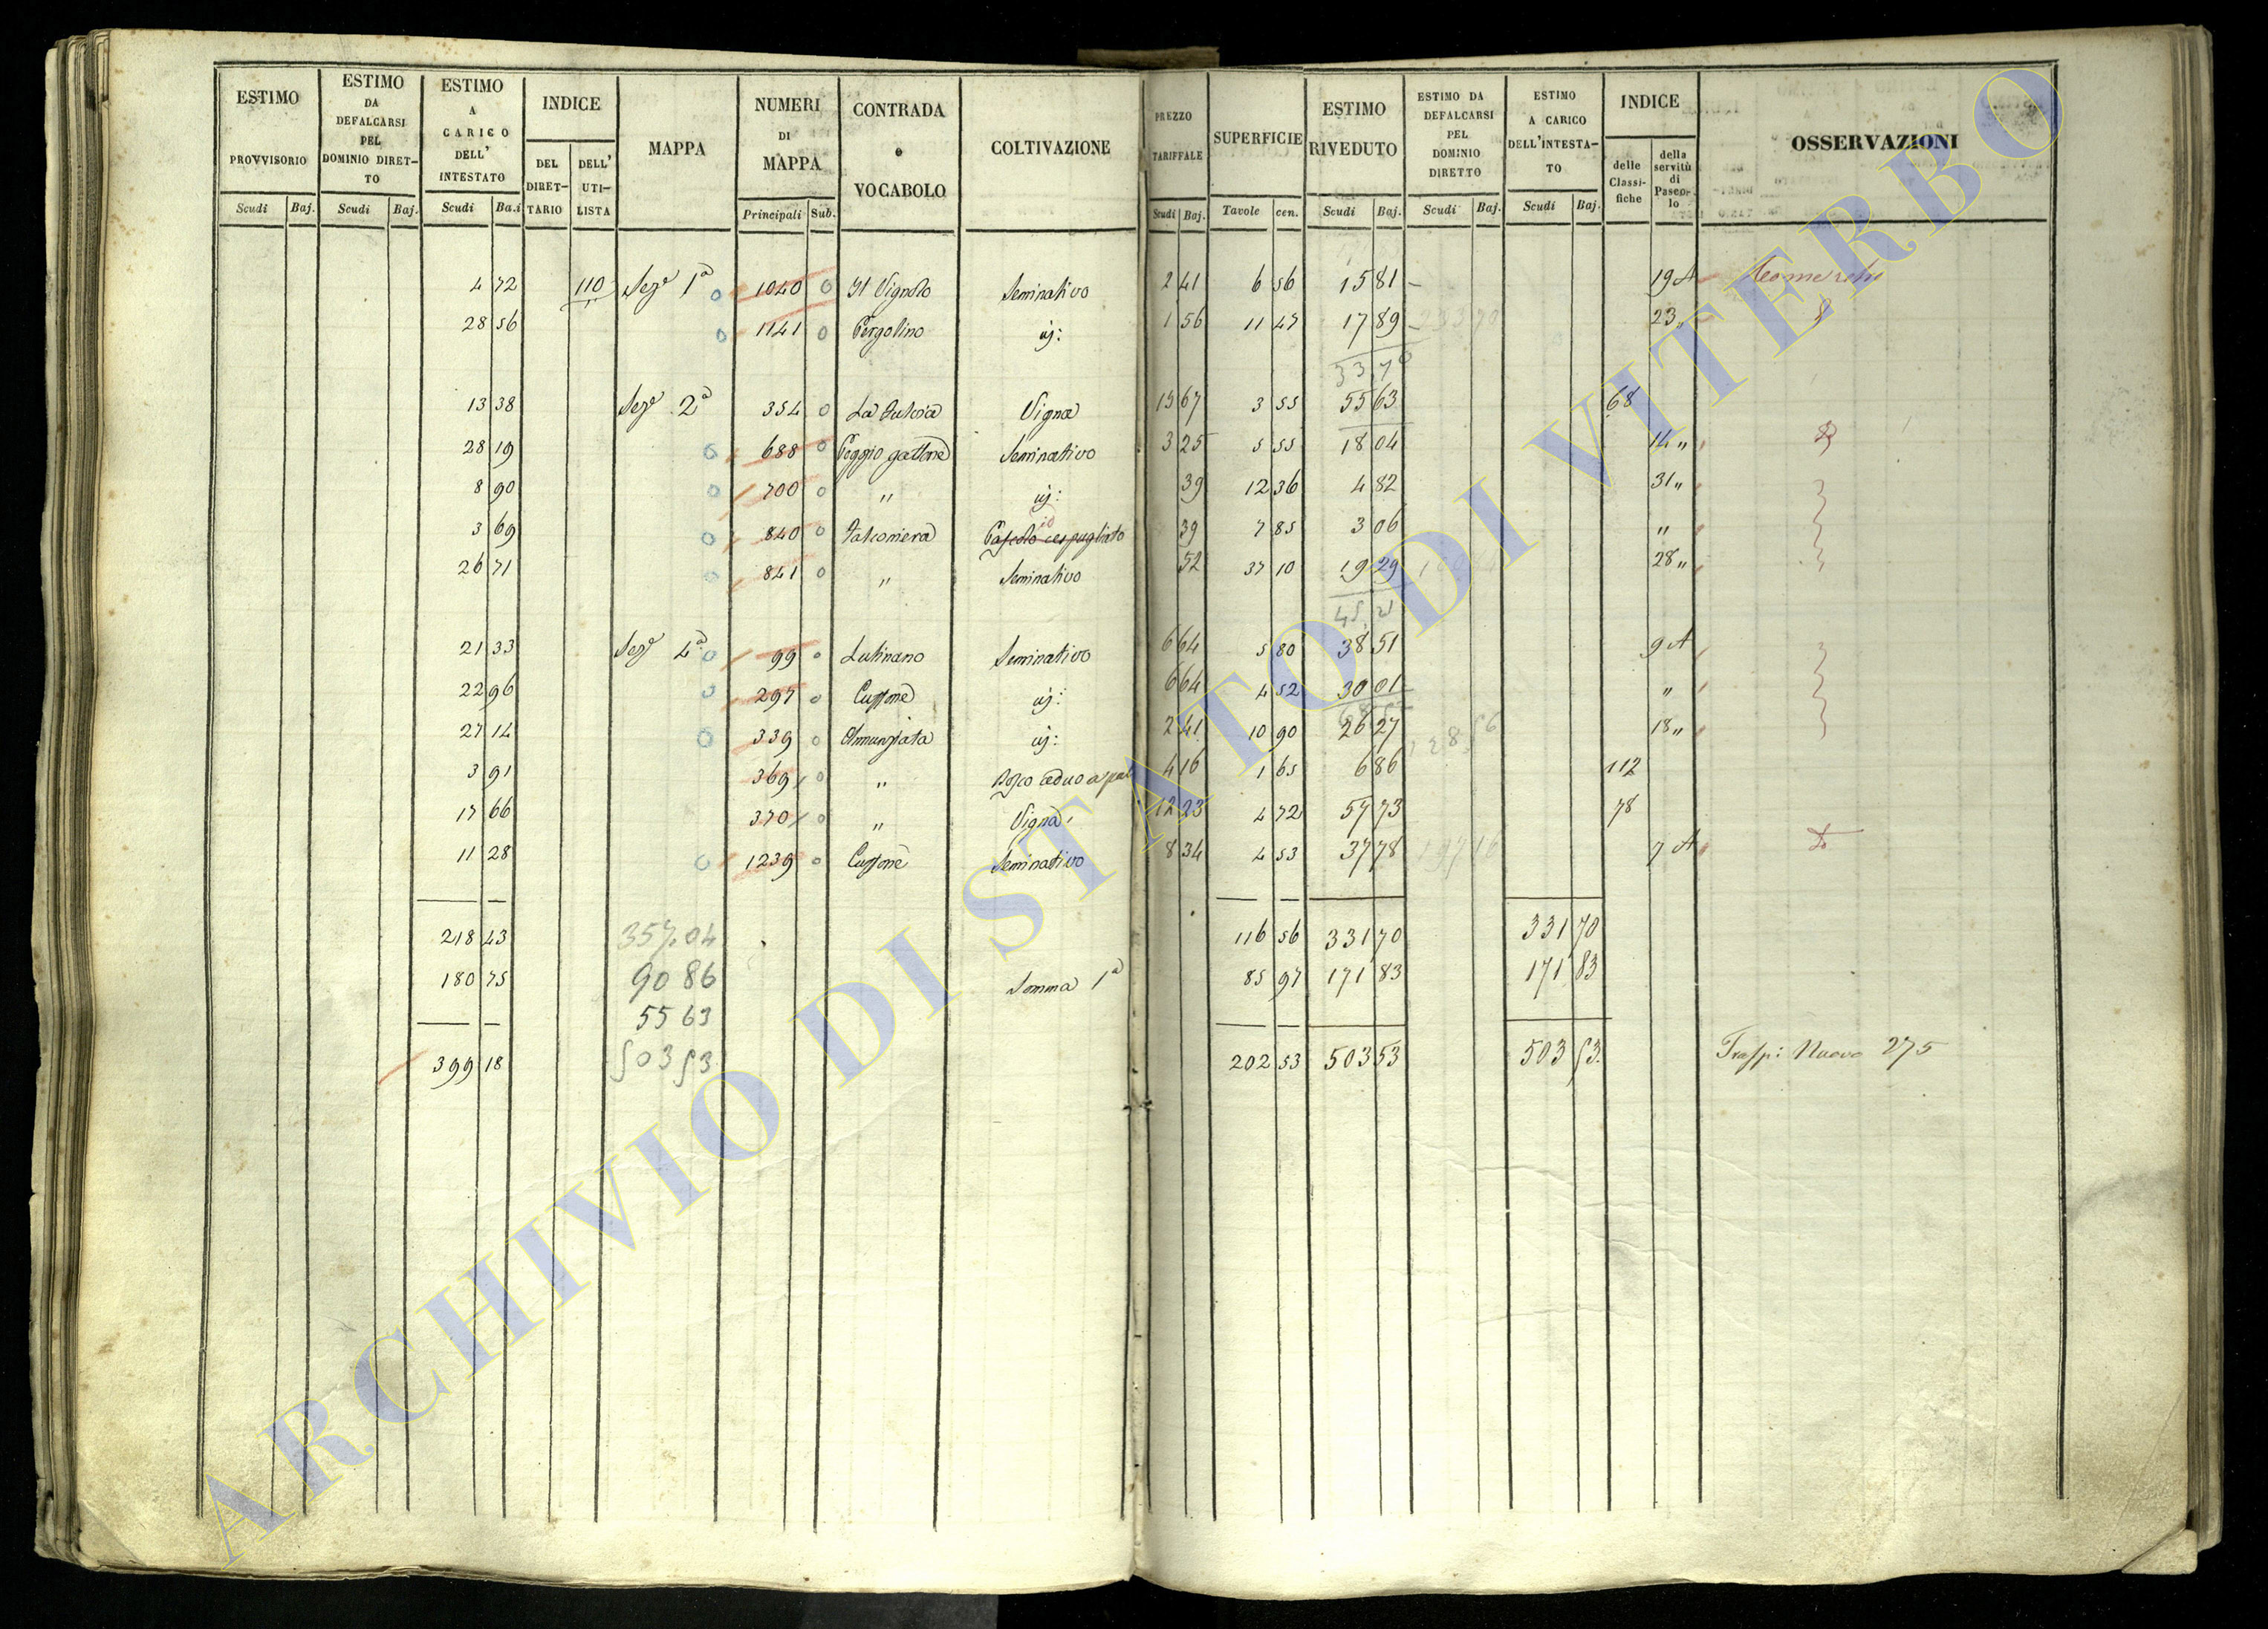 ESTIMO PROVVISORIO Scudi Baj.
ESTIMO DA DEFALCARSI PEL DOMINIO DIRET-TO Scudi Baj.
ESTIMO A CARICO DELL' INTESTATO Scudi Ba.i
INDICE DEL DIRET-TARIO DELL' UTI-LISTA
MAPPA
NUMERI DI MAPPA Principali Sub.
CONTRADA e VOCABOLO
COLTIVAZIONE
PREZZO TARIFFALE Scudi Baj.
SUPERFICIE Tavole cen.
ESTIMO RIVEDUTO Scudi Baj.
ESTIMO DA DEFALCARSI PEL DOMINIO DIRETTO Scudi Baj.
ESTIMO A CARICO DELL'INTESTA-TO Scudi Baj.
INDICE delle Classi-fiche della servitù di Pascolo
OSSERVAZIONI
4 72 110 Sez.e 1a 1040 0 Il Vignolo Seminativo 2 41 6 56 15 81 19 A
28 56 1141 0 Pergolino id: 1 56 11 47 17 89 23 "
33,70
13 38 Sez.e 2a 354 0 La Vigna 15 67 3 55 55 63 68
28 19 688 0 Poggio gattone Seminativo 3 25 5 55 18 04 14 "
8 90 700 0 " id: 39 12 36 4 82 31 "
3 69 840 0 Falconiera Pascolo cespugliato 39 7 85 3 06 "
26 71 841 0 " Seminativo 52 37 10 19 29 28 "
45,21
21 33 Sez.e 4a 99 0 Lutinano Seminativo 6 64 5 80 38 51 9 A
22 96 297 0 id: 6 64 4 52 30 01 "
27 14 339 0 Annunziata id: 2 41 10 90 26 27 18 "
3 91 369 0 " Bosco ceduo 4 16 1 65 6 86 112
17 66 370 0 " Vigna 12 23 4 72 57 73 78
11 28 1239 0 Seminativo 8 34 4 53 37 78 7 A
218 43 357.04 116 56 331 70 331 70
180 75 90 86 Somma 1a 85 97 171 83 171 83
55 63
399 18 503 53 202 53 503 53 503 53. Trasp: Nuovo 275
ARCHIVIO DI STATO DI VITERBO